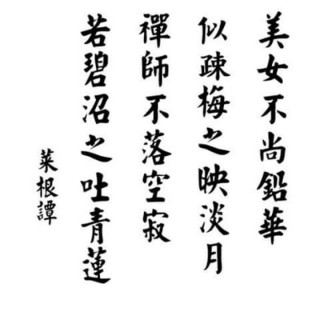 美女不尚鉛華
似疎梅之映淡月
禪師不落空寂
若碧沼之吐青蓮
菜根譚